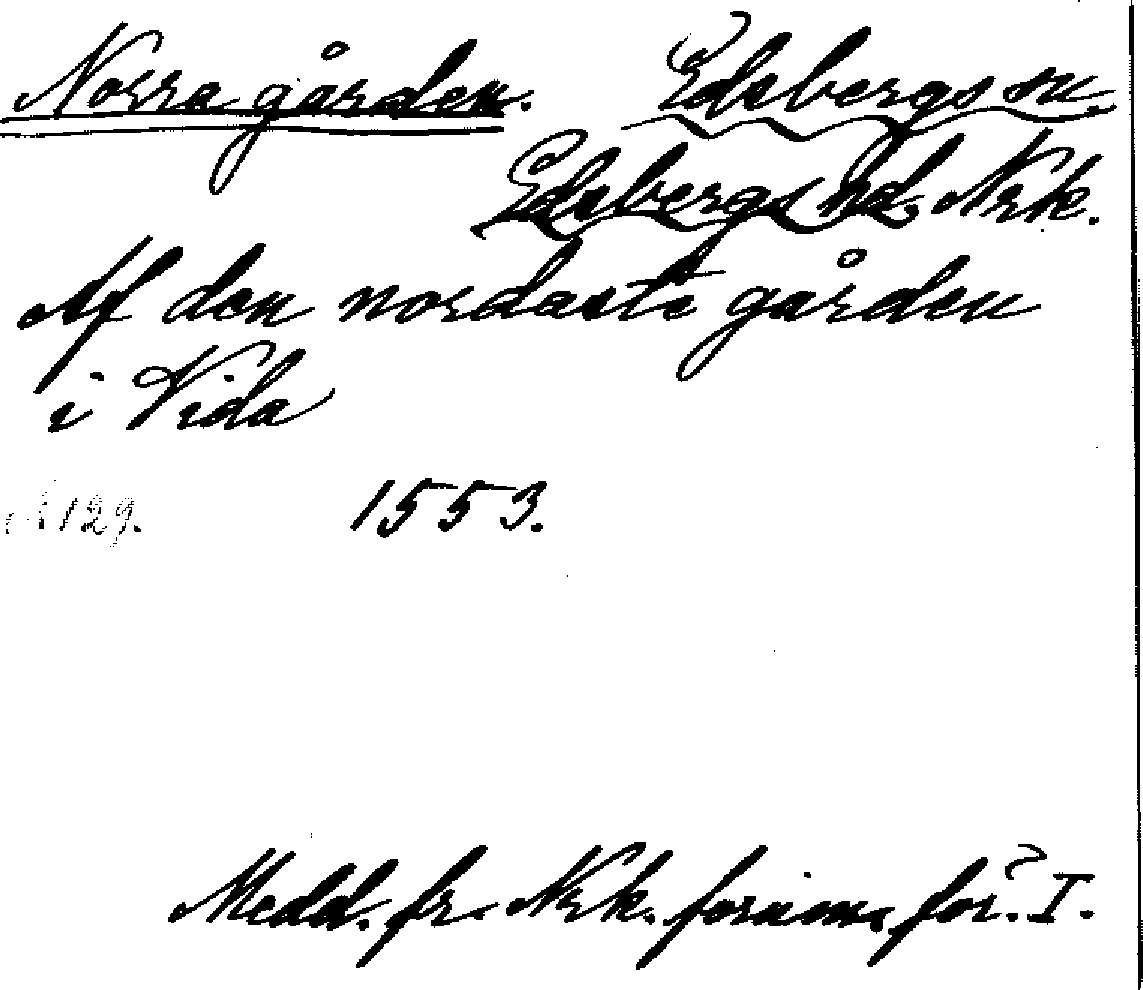 Norra gården. Edsbergs sn.
Edsbergs hd, Nrk.
Af den nordaste gården
i Vida
129. 1553.
Medd. fr. Nrk. fornm. för. I.